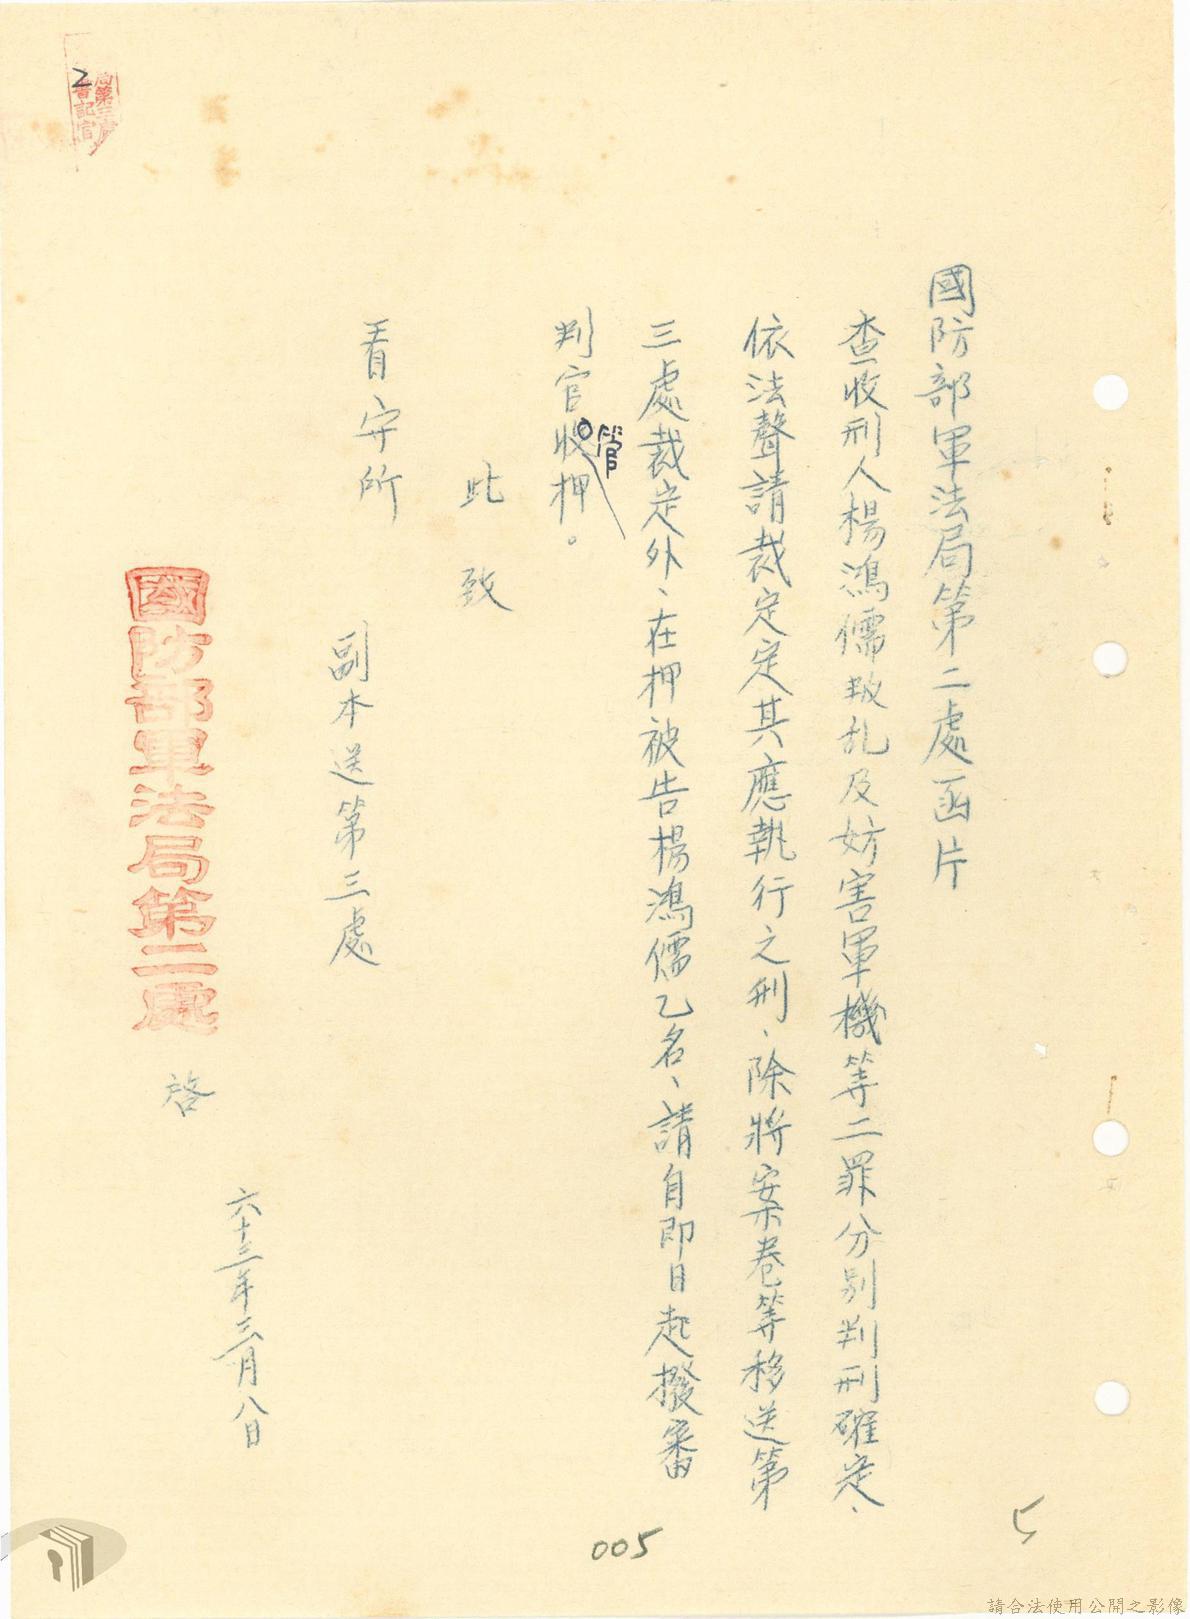 國防部軍法局第二處函片
查收刑人楊鴻儒叛乱及妨害軍機等二罪分別判刑確定、
依法聲請裁定定其應執行之刑、除將案卷等移送第
三處裁定外、在押被告楊鴻儒乙名、請自即日起撥審
判官收押。
管
此致
看守所
副本送第三處
國防部軍法局第二處
啓
六十三年三月八日
2
局第三處
書記官
005
5
請合法使用公開之影像